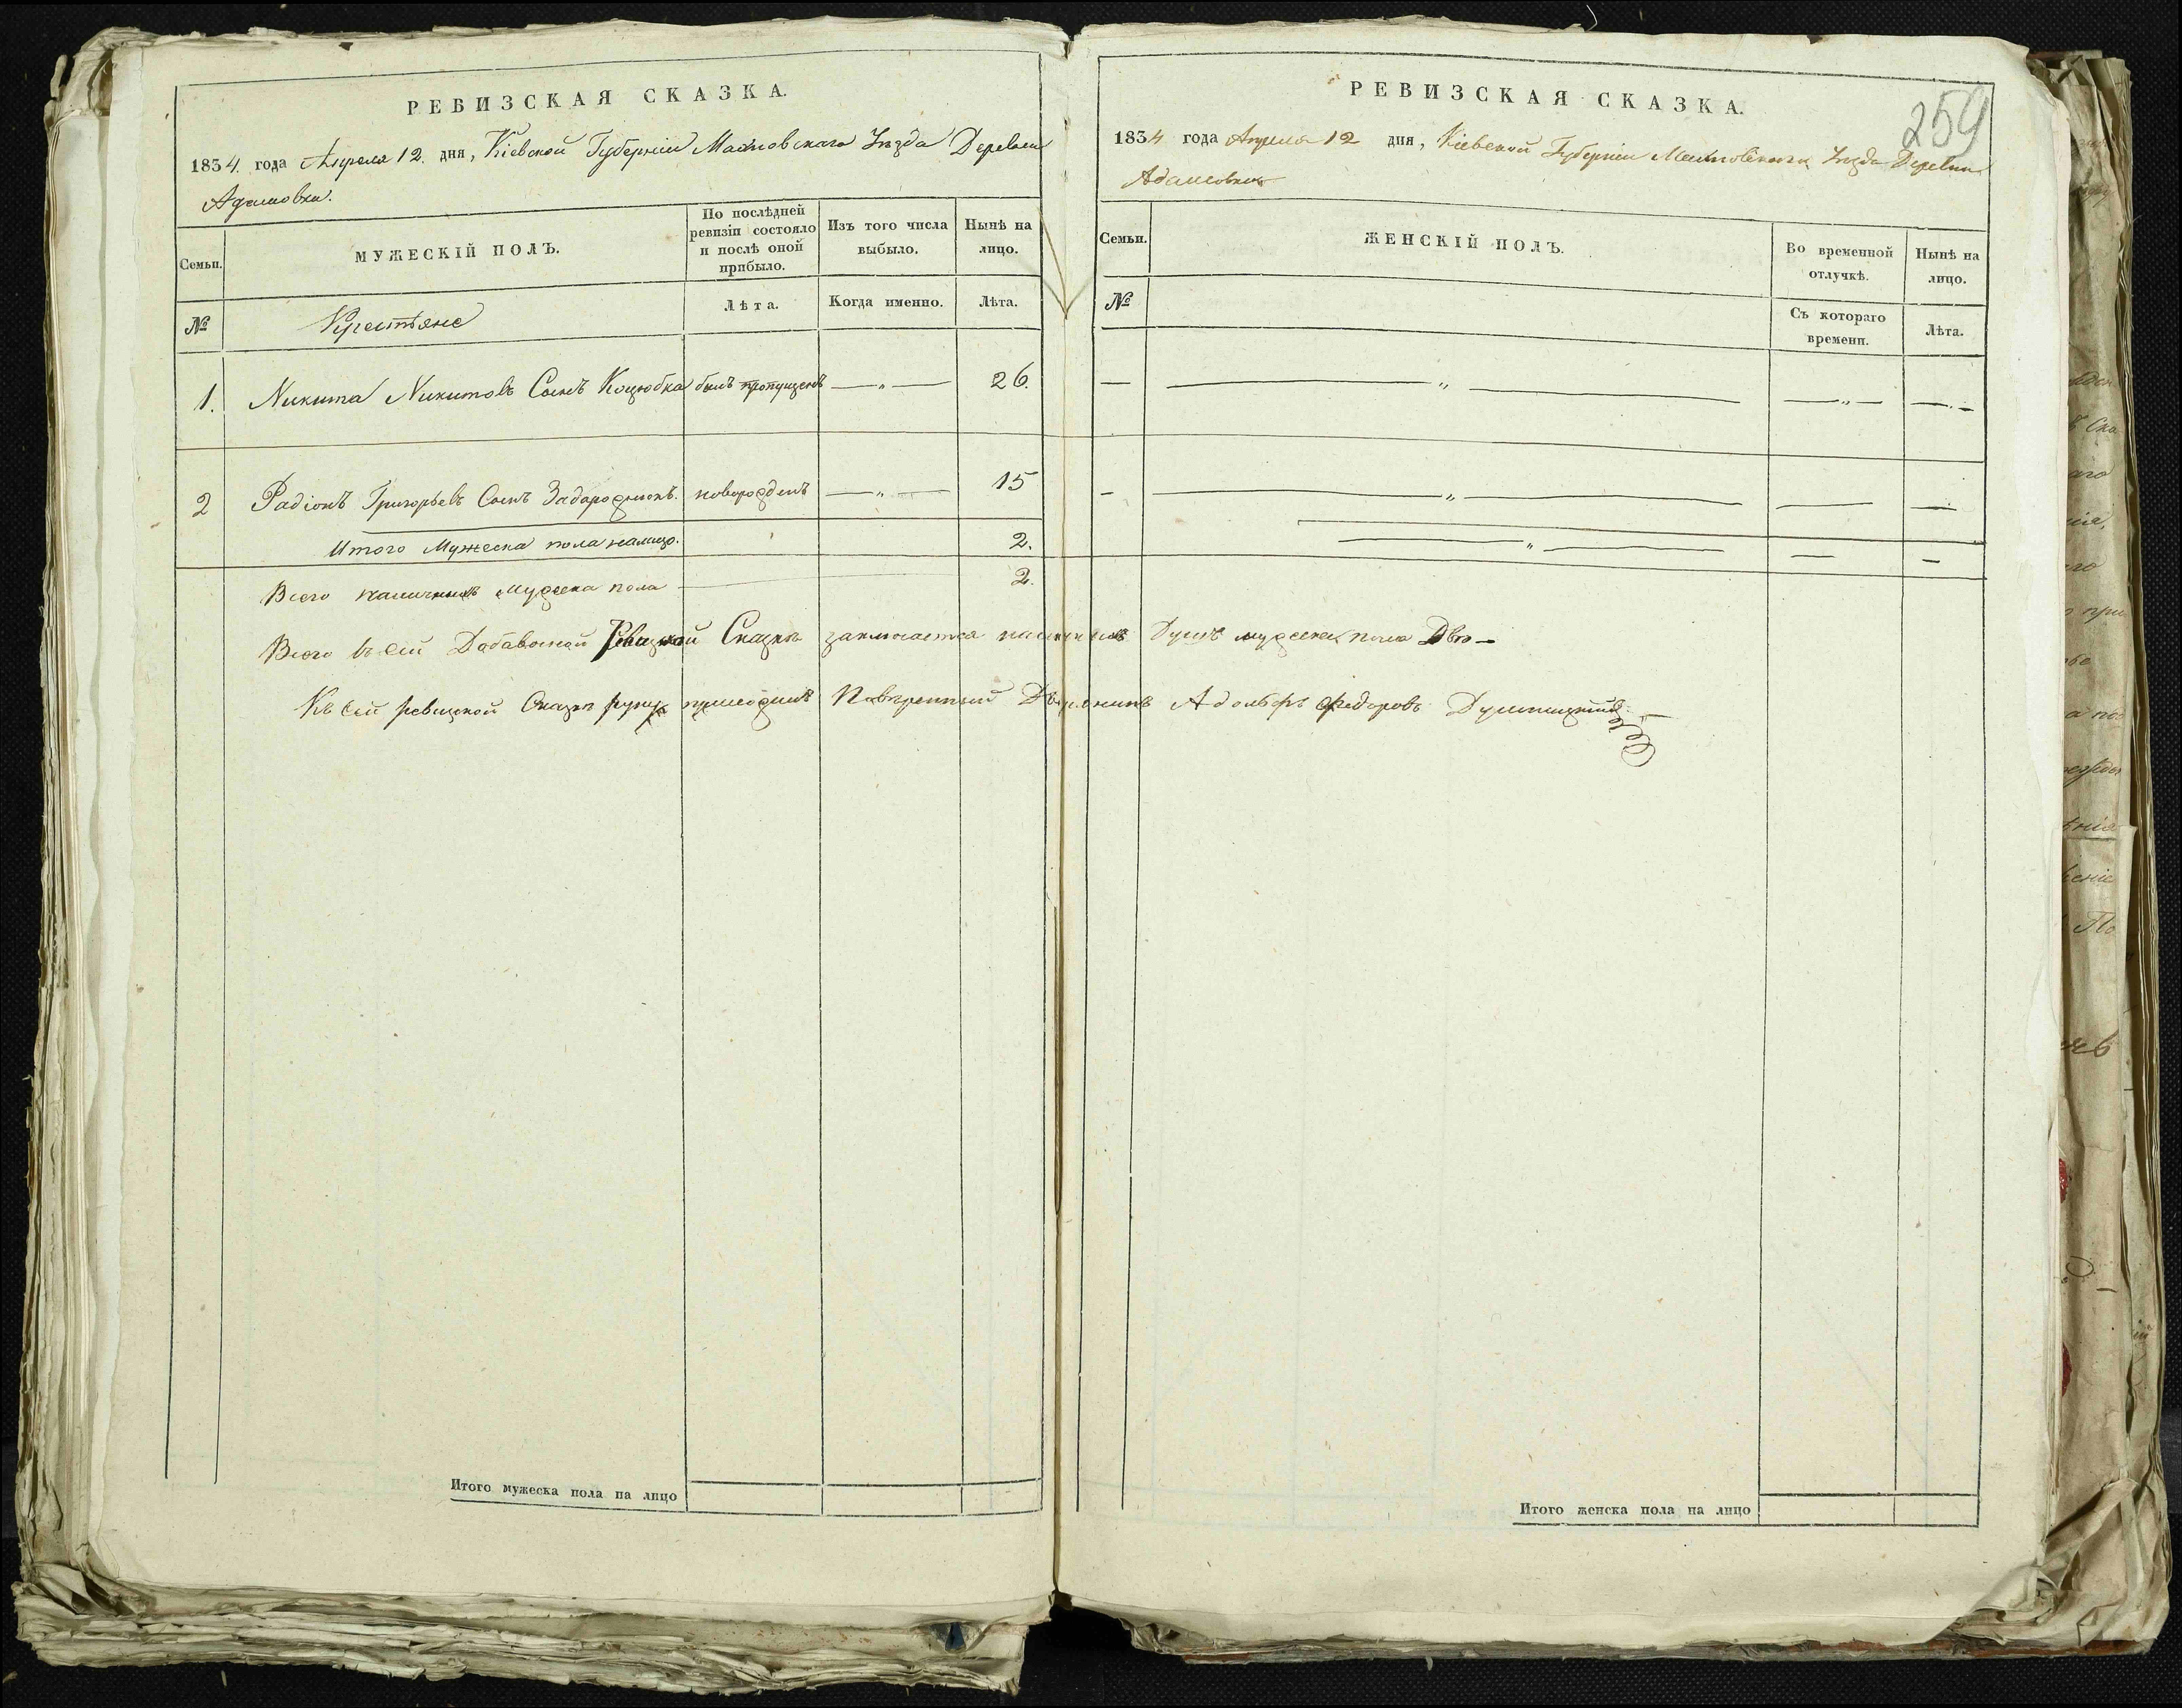 РЕВИЗСКАЯ СКАЗКА.
1834. года Апреля 12. дня, Кіевской Губерніи Махновскаго Уѣзда Деревни
Адамовки.
Семьи.
МУЖЕСКІЙ ПОЛЪ.
По послѣдней
ревизіи состояло
и послѣ оной
прибыло.
Изъ того числа
выбыло.
Нынѣ на
лицо.
№
Крестьяне
Лѣта.
Когда именно.
Лѣта.
1. Никита Никитовъ Сынъ Коцюбка былъ пропущенъ — „ — 26.
2 Радіонъ Григорьевъ Сынъ Задорожнюкъ. новорожденъ — „ — 15
Итого Мужеска пола налицо. 2.
Всего наличныхъ Мужеска пола 2.
Всего въ сей Добавочной Ревизкой Сказкѣ заключается наличныхъ Душъ мужеска пола Двѣ —
Къ сей ревизкой Сказкѣ руку приложилъ Повѣренный Дворянинъ Адольфъ Федоровъ
Итого мужеска пола на лицо
РЕВИЗСКАЯ СКАЗКА.
259
1834 года Апреля 12 дня, Кіевской Губерніи Махновскаго Уѣзда Деревни
Адамовки
Семьи.
ЖЕНСКІЙ ПОЛЪ.
Во временной
отлучкѣ.
Нынѣ на
лицо.
№
Съ котораго
времени.
Лѣта.
— — „ — — „ — —
— — „ — — —
— „ — — —
Итого женска пола на лицо